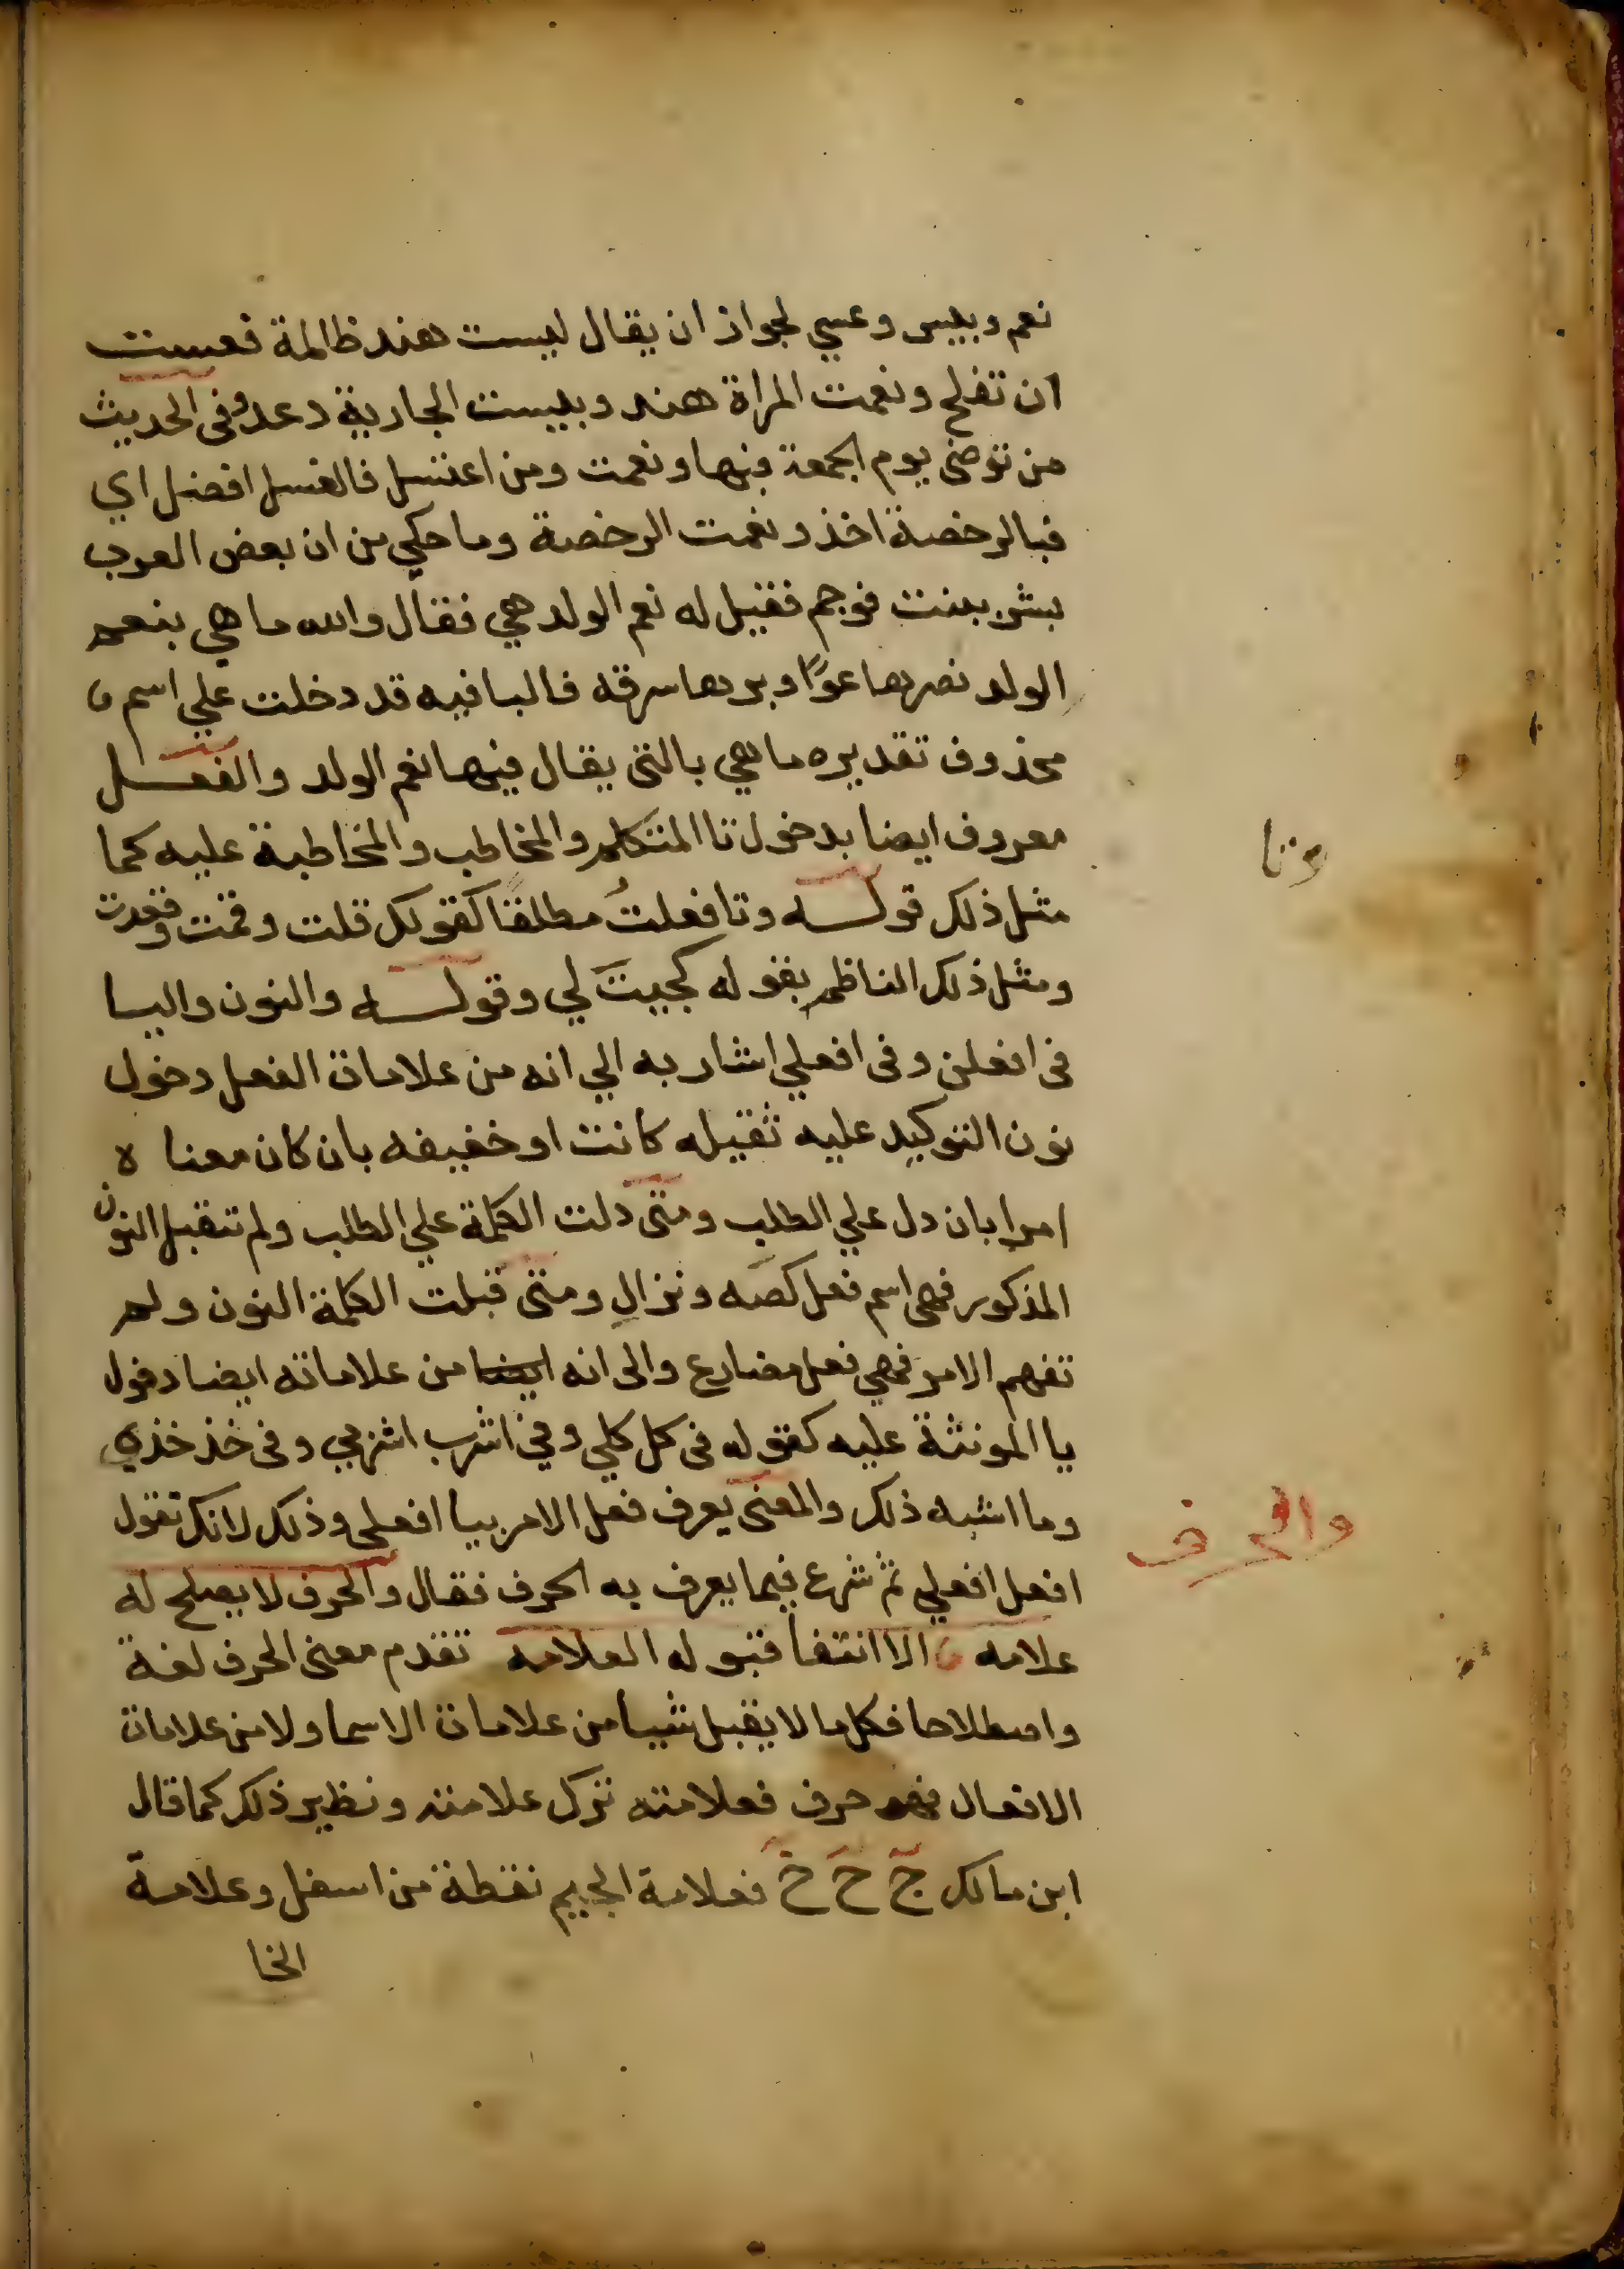 نعم وبيس وعسي لجواز ان يقال ليست هند ظالمة فعست
ان تفلح ونعمت المراة هند وبيست الجارية دعد وفى الحديث
من توضى يوم الجمعة فبها ونعمت ومن اغتسل فالغسل افضل اي
فبالرخصة اخذ ونعمت الرخصة وما حكي من ان بعض العرب
بشر ببنت فوجم فقيل له نعم الولد هي فقال والله ما هي بنعم
الولد نصرها عوًا وبرها سرقه فالبا فيه قد دخلت علي اسم
محذوف تقديره ما هي بالتى يقال فيها نعم الولد والفعل
معروف ايضا بدخول تا المتكلم والمخاطب والمخاطبة عليه كما
وتا
مثل ذلك قوله وتا فعلتُ مطلقًا كقولك قلت وقمت وقعدت
ومثل ذلك الناظم بقوله كجيتَ لي وقوله والنون واليا
فى افعلن وفى افعلي اشار به الي انه من علامات الفعل دخول
نون التوكيد عليه ثقيله كانت او خفيفه بان كان معناه
امرا بان دل علي الطلب ومتى دلت الكلمة علي الطلب ولم تتقبل النون
المذكور فهى اسم فعل كصَه ونزالِ ومتى قبلت الكلمة النون ولم
تفهم الامر فهي فعل مضارع والى انه ايضا من علاماته ايضا دخول
يا المونثة عليه كقوله فى كل كلي وفي اشرب اشربي وفى خذ خذي
وما اشبه ذلك والمعنى يعرف فعل الامر بيا افعلى وذلك لانك تقول
والحرف
افعل افعلي ثم شرع فيما يعرف به الحرف فقال والحرف لا يصلح له
علامه الا انتفا قبوله العلامه تقدم معنى الحرف لغة
واصطلاحا فكل ما لا يقبل شيا من علامات الاسما ولا من علامات
الافعال فهو حرف فعلامته ترك علامته ونظير ذلك كما قال
ابن مالك ج ح خ فعلامة الجيم نقطة من اسفل وعلامة
الخا